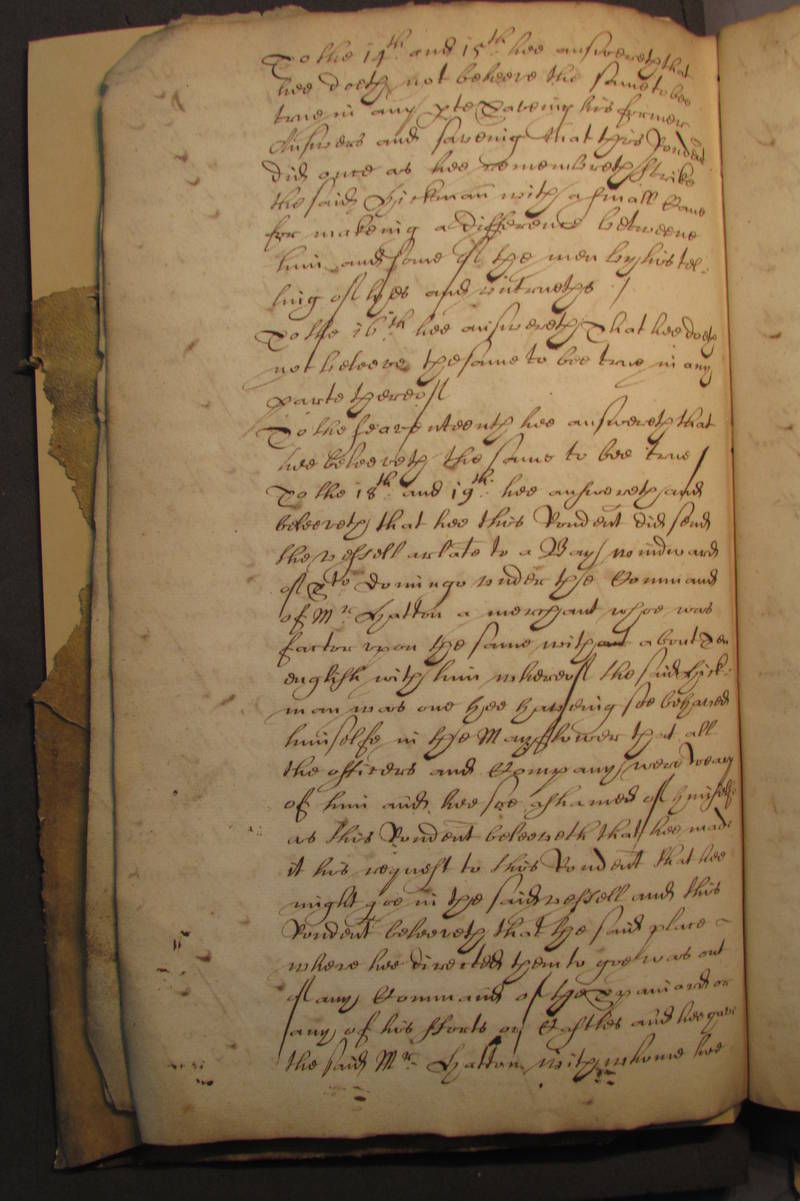 To the 14th and 15th hee answereth that
hee doeth not beleeve the same to bee
true in any pte Saveing his former
Answers and saveing that this Rondent
did once as hee remembreth strike
the said Hickman with a small Cane
for makeing a difference betweene
him and some of the men by his tel-
ling of lyes and untrueths /
To the 16th hee answereth That hee doeth
not beleeve the same to bee true in any
parte thereof
To the seaventeenth hee answereth that
hee beleeveth the same to bee true /
To the 18th and 19th hee answereth and
beleeveth that hee this Rondent did send
the vessell arlate to a Bay windward
of Sto Domingo under the Command
of Mr Hatton a merchant whoe was
factor upon the same with about ten
english with him whereof the said Hick-
man was one hee haveing soe behaved
himselfe in the Mayflower that all
the officers and Company were weary
of him and hee soe ashamed of himselfe
as this Rondent beleeveth that hee made
it his request to this Rondent that hee
might goe in the said vessell and this
Rondent beleeveth that the said place
where hee directed them to goe was out
of any Command of the Spaniards or
any of his fforts or Castles and hee gave
the said Mr Hatton with whome hee